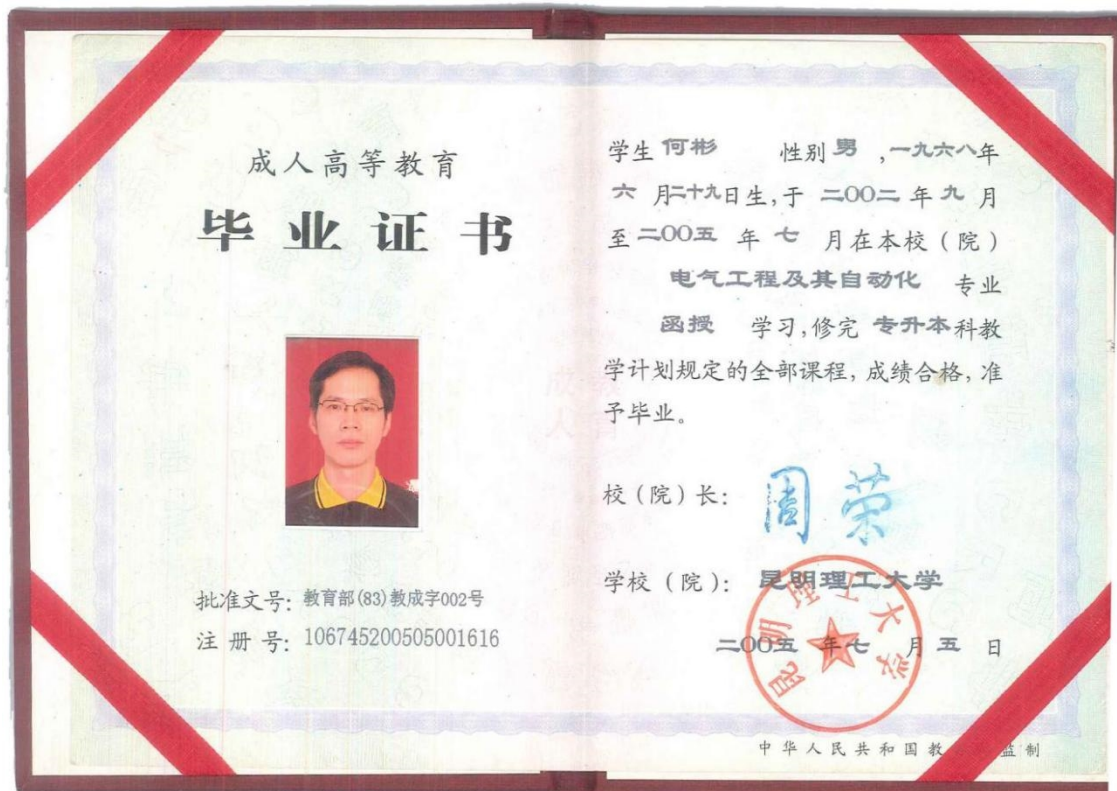 成人高等教育
毕业证书
批准文号：教育部(83)教成字002号
注册号：106745200505001616
学生 何彬 性别 男，一九六八年
六月二十九日生，于二〇〇二年九月
至二〇〇五年七月在本校（院）
电气工程及其自动化 专业
函授 学习，修完 专升本科教
学计划规定的全部课程，成绩合格，准
予毕业。
校（院）长：周荣
学校（院）：昆明理工大学
二〇〇五年七月五日
昆明理工大学
中华人民共和国教 监制